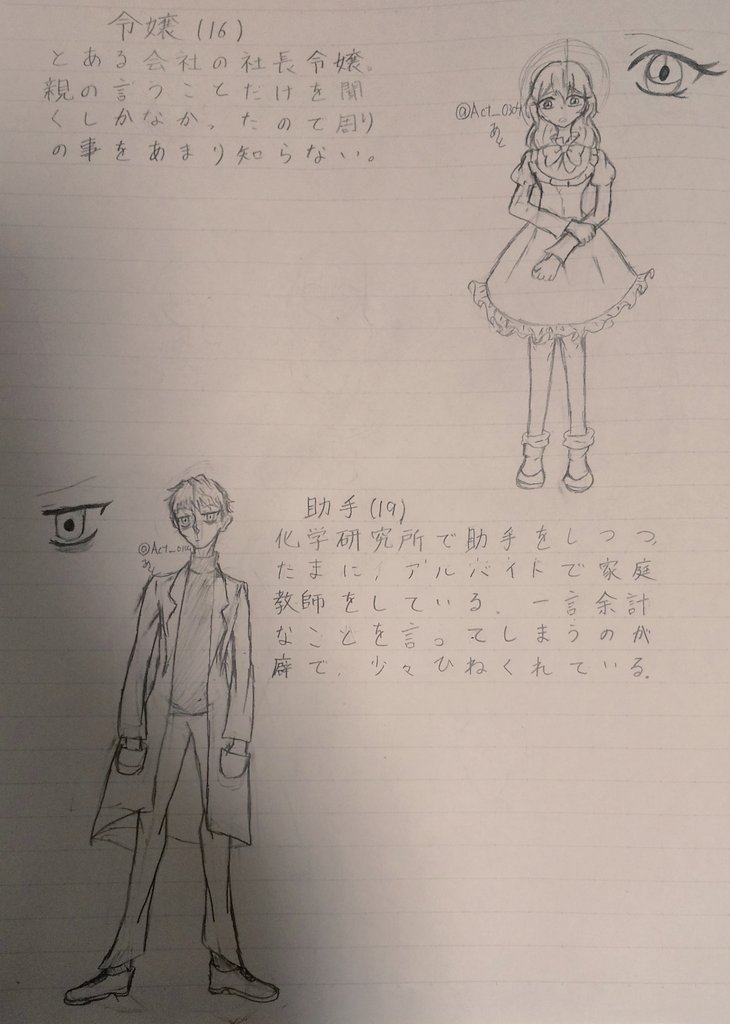 令嬢(16)
とある会社の社長令嬢。
親の言うことだけを聞
くしかなかったので周り
の事をあまり知らない。
あと
助手(19)
化学研究所で助手をしつつ、
たまに、アルバイトで家庭
教師をしている。一言余計
なことを言ってしまうのが
癖で、少々ひねくれている。
あと